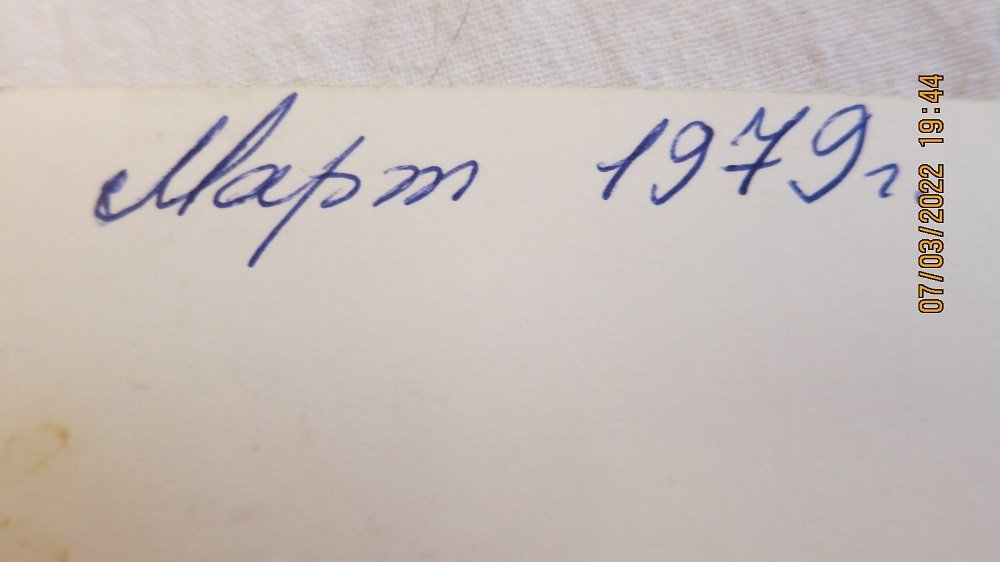 Март 1979г.
07/03/2022 19:44